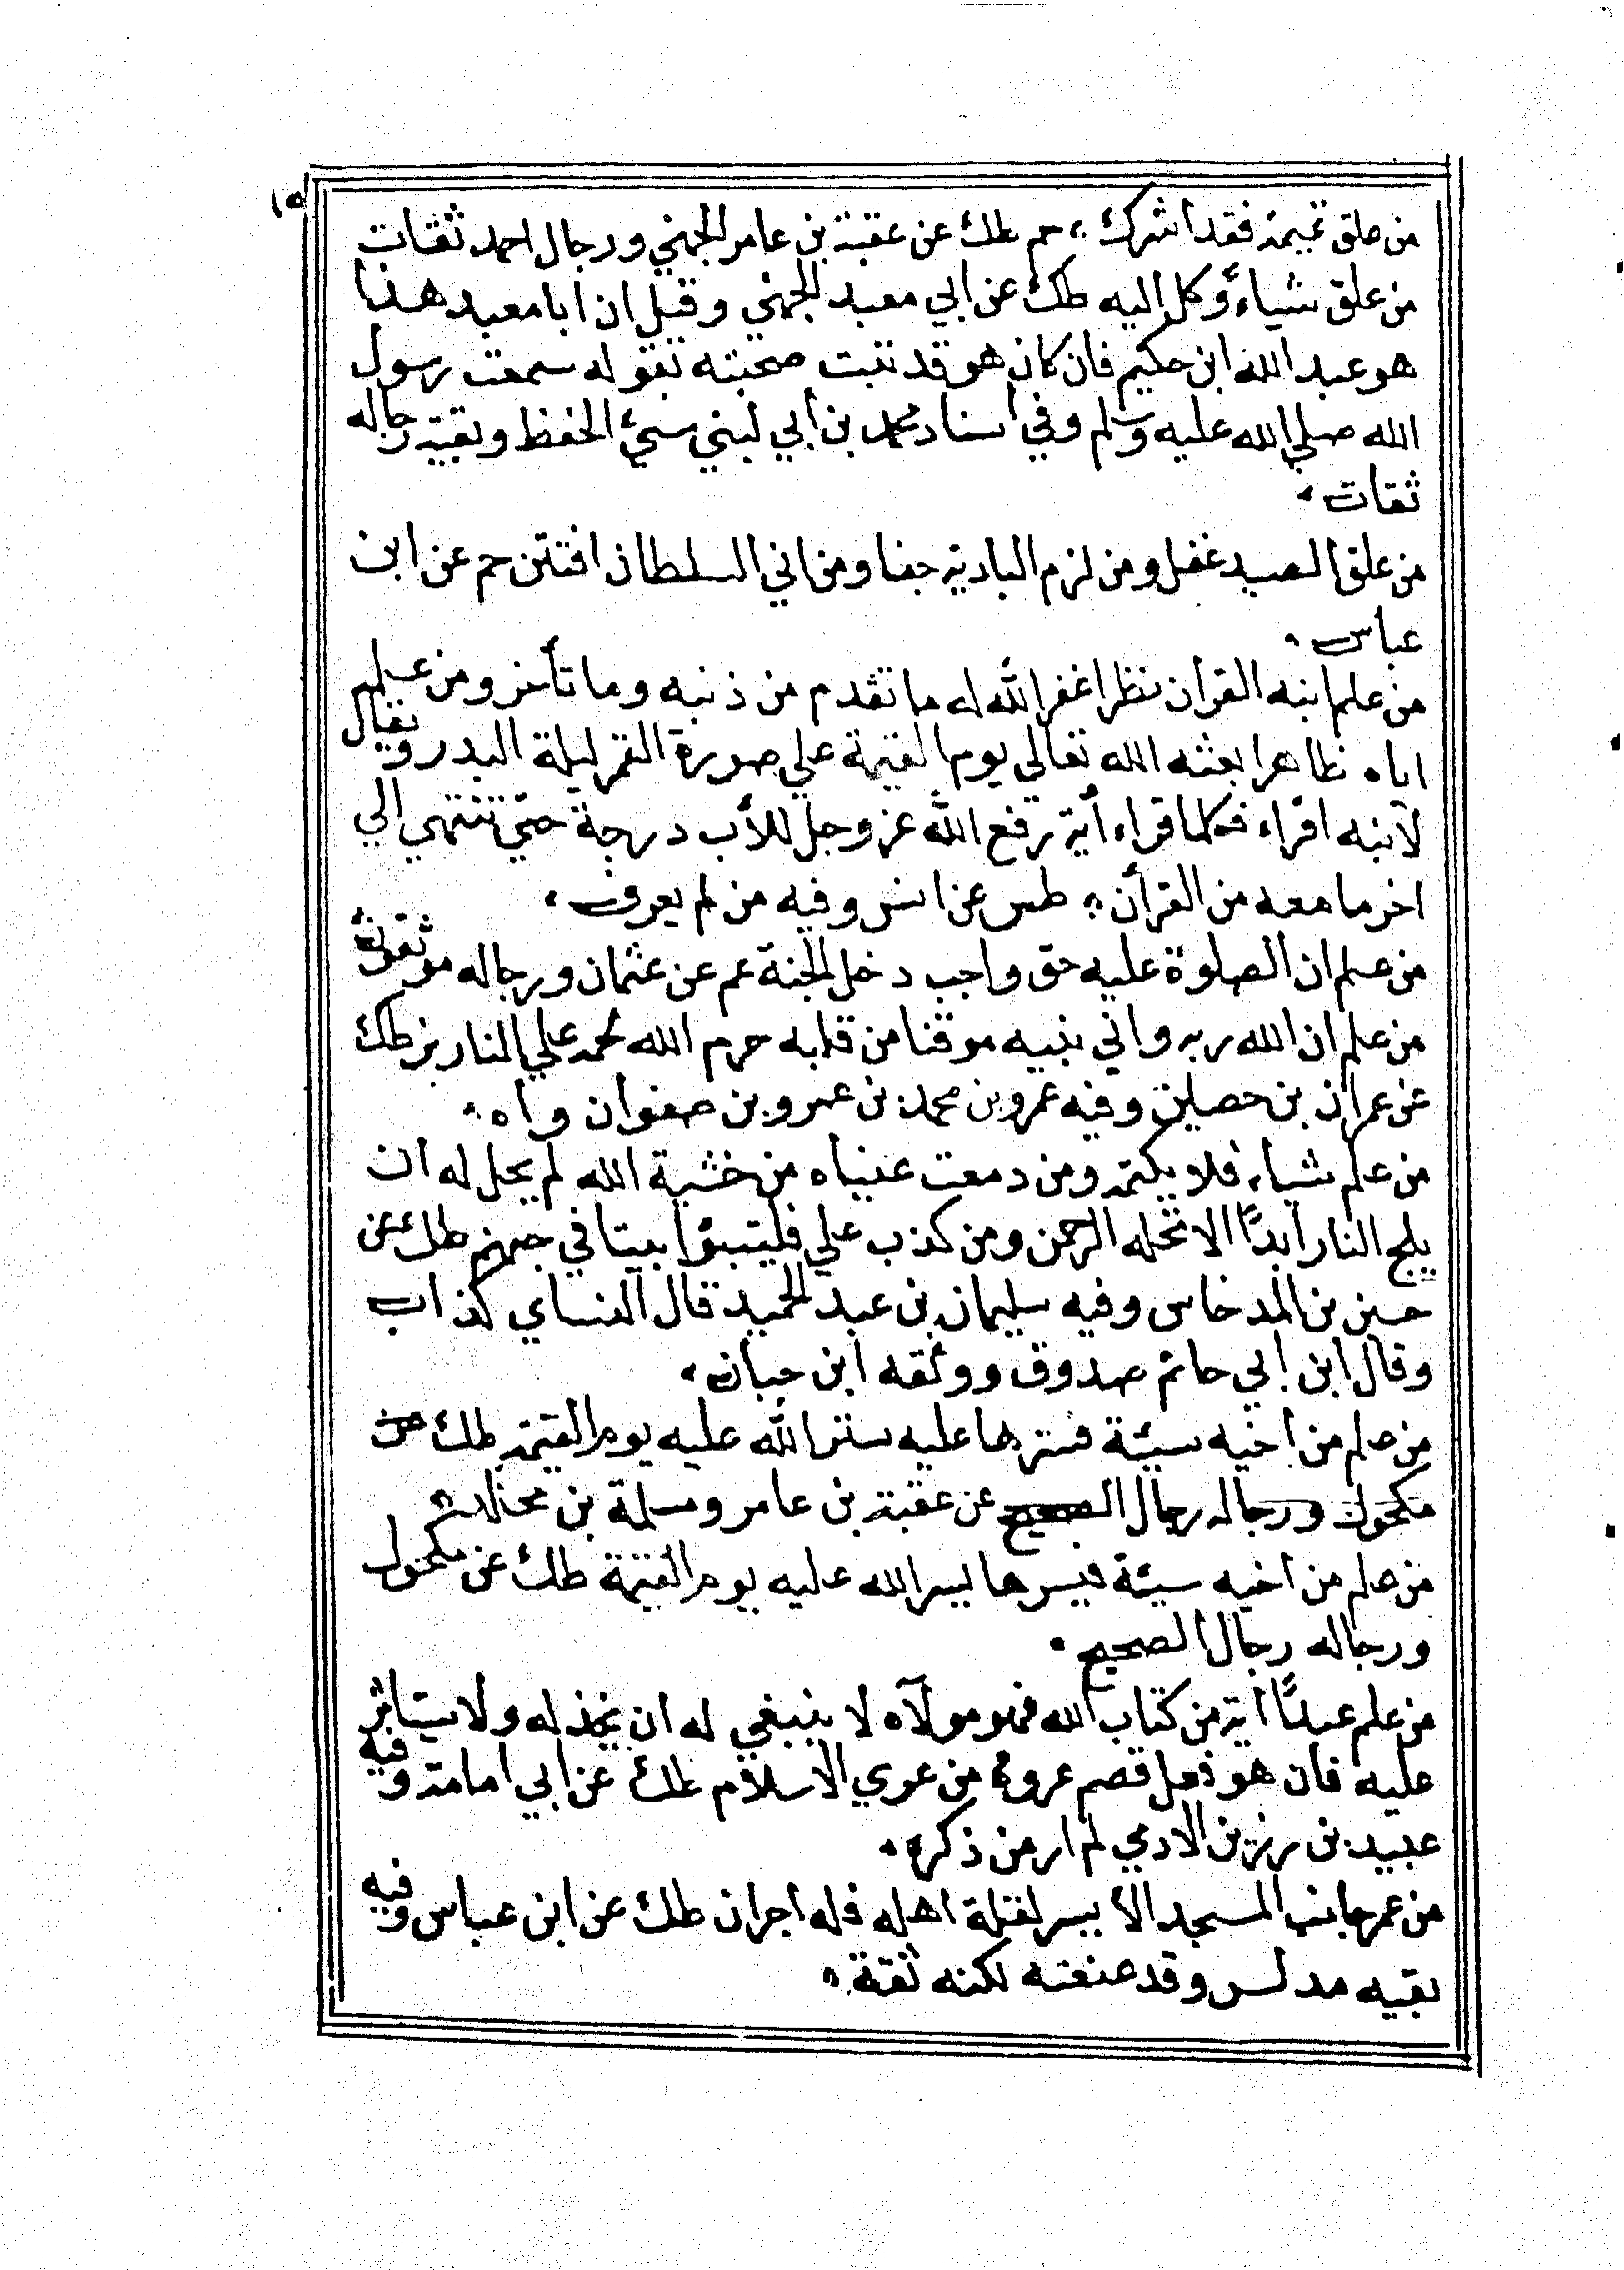 ١٥
من علق تميمة فقد أشرك ،، حم طك عن عقبة بن عامر الجهني ورجال احمد ثقات
من علق شياءً وكل اليه طك عن ابي معبد الجهني وقيل ان ابا معبد هذا
هو عبد الله ابن حكيم فان كان هو قد ثبت صحبته بقوله سمعت رسول
الله صلي الله عليه وسلم وفي اسناد محمد بن أبي ليلي سيئ الحفظ وبقية رجاله
ثقات ،
من علق الصيد غفل ومن لزم البادية جفا ومن اتي السلطان افتتن حم عن ابن
عباس ،
من علم ابنه القرآن نظرا غفر الله له ما تقدم من ذنبه وما تأخر ومن علم
اياه ظاهرا بعثه الله تعالي يوم القيمة علي صورة القمر ليلة البدر ويقال
لابنه اقراء فكلما قراء أية رفع الله عز وجل للأب درجة حتي تنتهي الي
اخر ما معه من القرأن ،، طس عن انس وفيه من لم يعرف ،
من علم ان الصلوة عليه حق واجب دخل الجنة عم عن عثمان ورجاله موثقون
من علم ان الله ربه واني نبيه موقنا من قلبه حرم الله لحمه علي النار بز طك
عن عمران بن حصين وفيه عمرو بن محمد بن عمرو بن صفوان واه ،
من علم شياء فلا يكتمه ومن دمعت عيناه من خشية الله لم يحل له ان
يلج النار أبدًا الا تحله الرحمن ومن كذب علي فليتبوأ بيتا في جهنم طك عن
حسن بن المدخاس وفيه سليمان بن عبد الحميد قال النساي كذاب
وقال ابن ابي حاتم صدوق ووثقه ابن حبان ،
من علم من اخيه سيئة فسترها عليه ستر الله عليه يوم القيمة طك عن
مكحول ورجاله رجال الصحيح عن عقبة بن عامر ومسلمة بن مخلد ،،
من علم من اخيه سيئة فيسرها ليسر الله عليه يوم القيمة طك عن مكحول
ورجاله رجال الصحيح ،
من علم عبدًا أية من كتاب الله فهو مولاه لا ينبغي له ان يخذله ولا يستأثر
عليه فان هو فعل قصم عروة من عري الاسلام طك عن ابي امامة وفيه
عبيد بن رزين الادمي لم ار من ذكره ،
من عمر جانب المسجد الأيسر لقلة اهله فله اجران طك عن ابن عباس وفيه
بقيه مدلس وقد عنعنه لكنه ثقة ،،